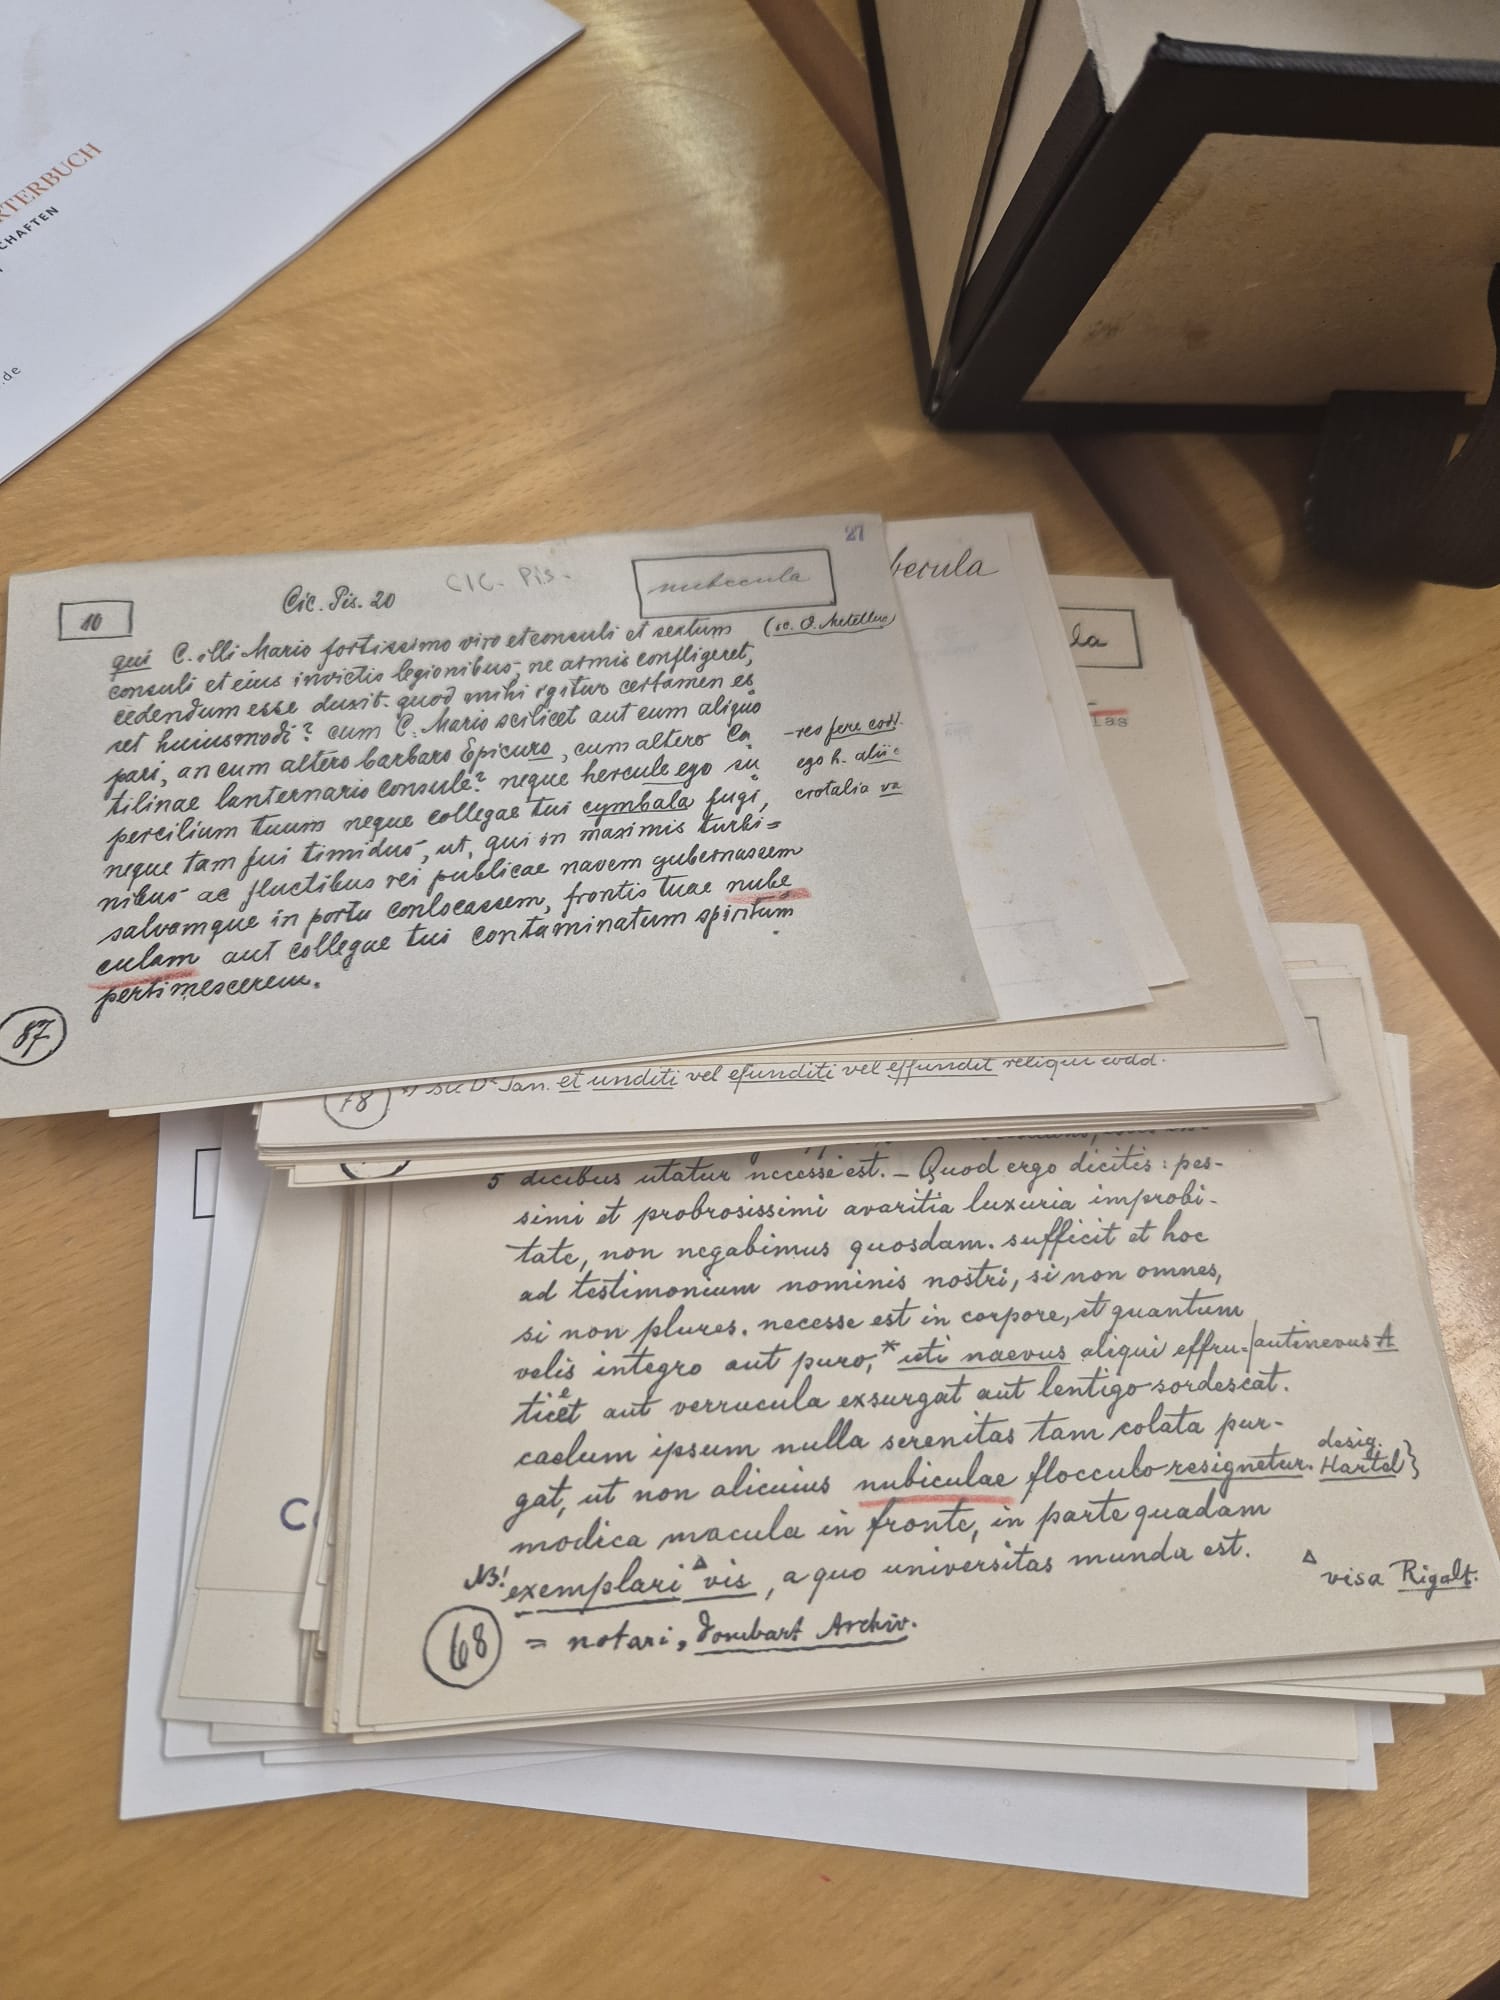 RTERBUCH
CHAFTEN
.de
27
10
Cic. Pis. 20
CIC. Pis.
nubecula
qui C. illi Mario fortissimo viro et consuli et sextum (sc. Q. Metellus)
consuli et eius invictis legionibus, ne armis confligeret,
cedendum esse duxit. quod mihi igitur certamen es
set huiusmodi? cum C. Mario scilicet aut cum aliquo
pari, an cum altero barbaro Epicuro, cum altero Ca -reo fere codd.
tilinae lanternario consule? neque hercule ego su ego h. alii
percilium tuum neque collegae tui cymbala fugi, crotalia va
neque tam fui timidus, ut, qui in maximis turbi=
nibus ac fluctibus rei publicae navem gubernassem
salvamque in portu conlocassem, frontis tuae nube
culam aut collegae tui contaminatum spiritum
pertimescerem.
87
becula
la
ias
78 Jan. et unditi vel efunditi vel effundit reliqui codd.
5 dicibus utatur necesse est. – Quod ergo dicitis: pes-
simi et probrosissimi avaritia luxuria improbi-
tate, non negabimus quosdam. sufficit et hoc
ad testimonium nominis nostri, si non omnes,
si non plures. necesse est in corpore, et quantum
velis integro aut puro,* uti naevus aliqui effru- | aut inevus A
ticet aut verrucula exsurgat aut lentigo sordescat.
e
caelum ipsum nulla serenitas tam colata pur-
gat, ut non alicuius nubiculae flocculo resignetur. desig. Hartel}
modica macula in fronte, in parte quadam
NB! exemplari Δ vis, a quo universitas munda est. Δ visa Rigalt.
68 = notari, Dombart Archiv.
C